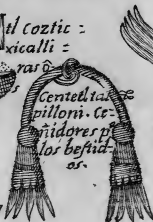 tl coztic =
xicalli =
ras ô
s
Centetl tla
pilloni. Ce
ñidores p
los bestid
os.